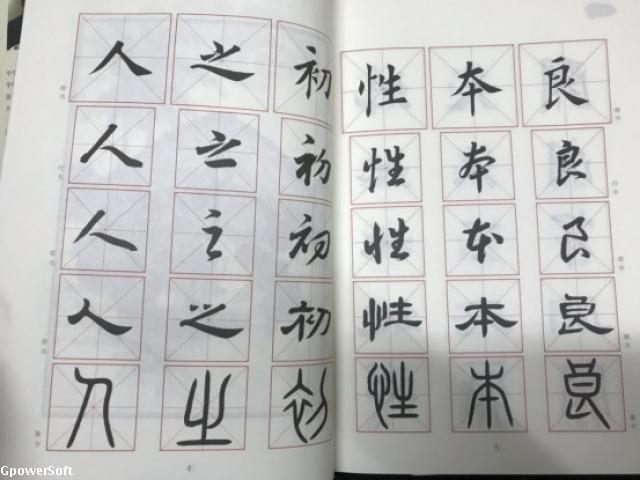 人之初性本良
人之初性本良
人之初性本良
人之初性本良
人之初性本良
4
5
GpowerSoft